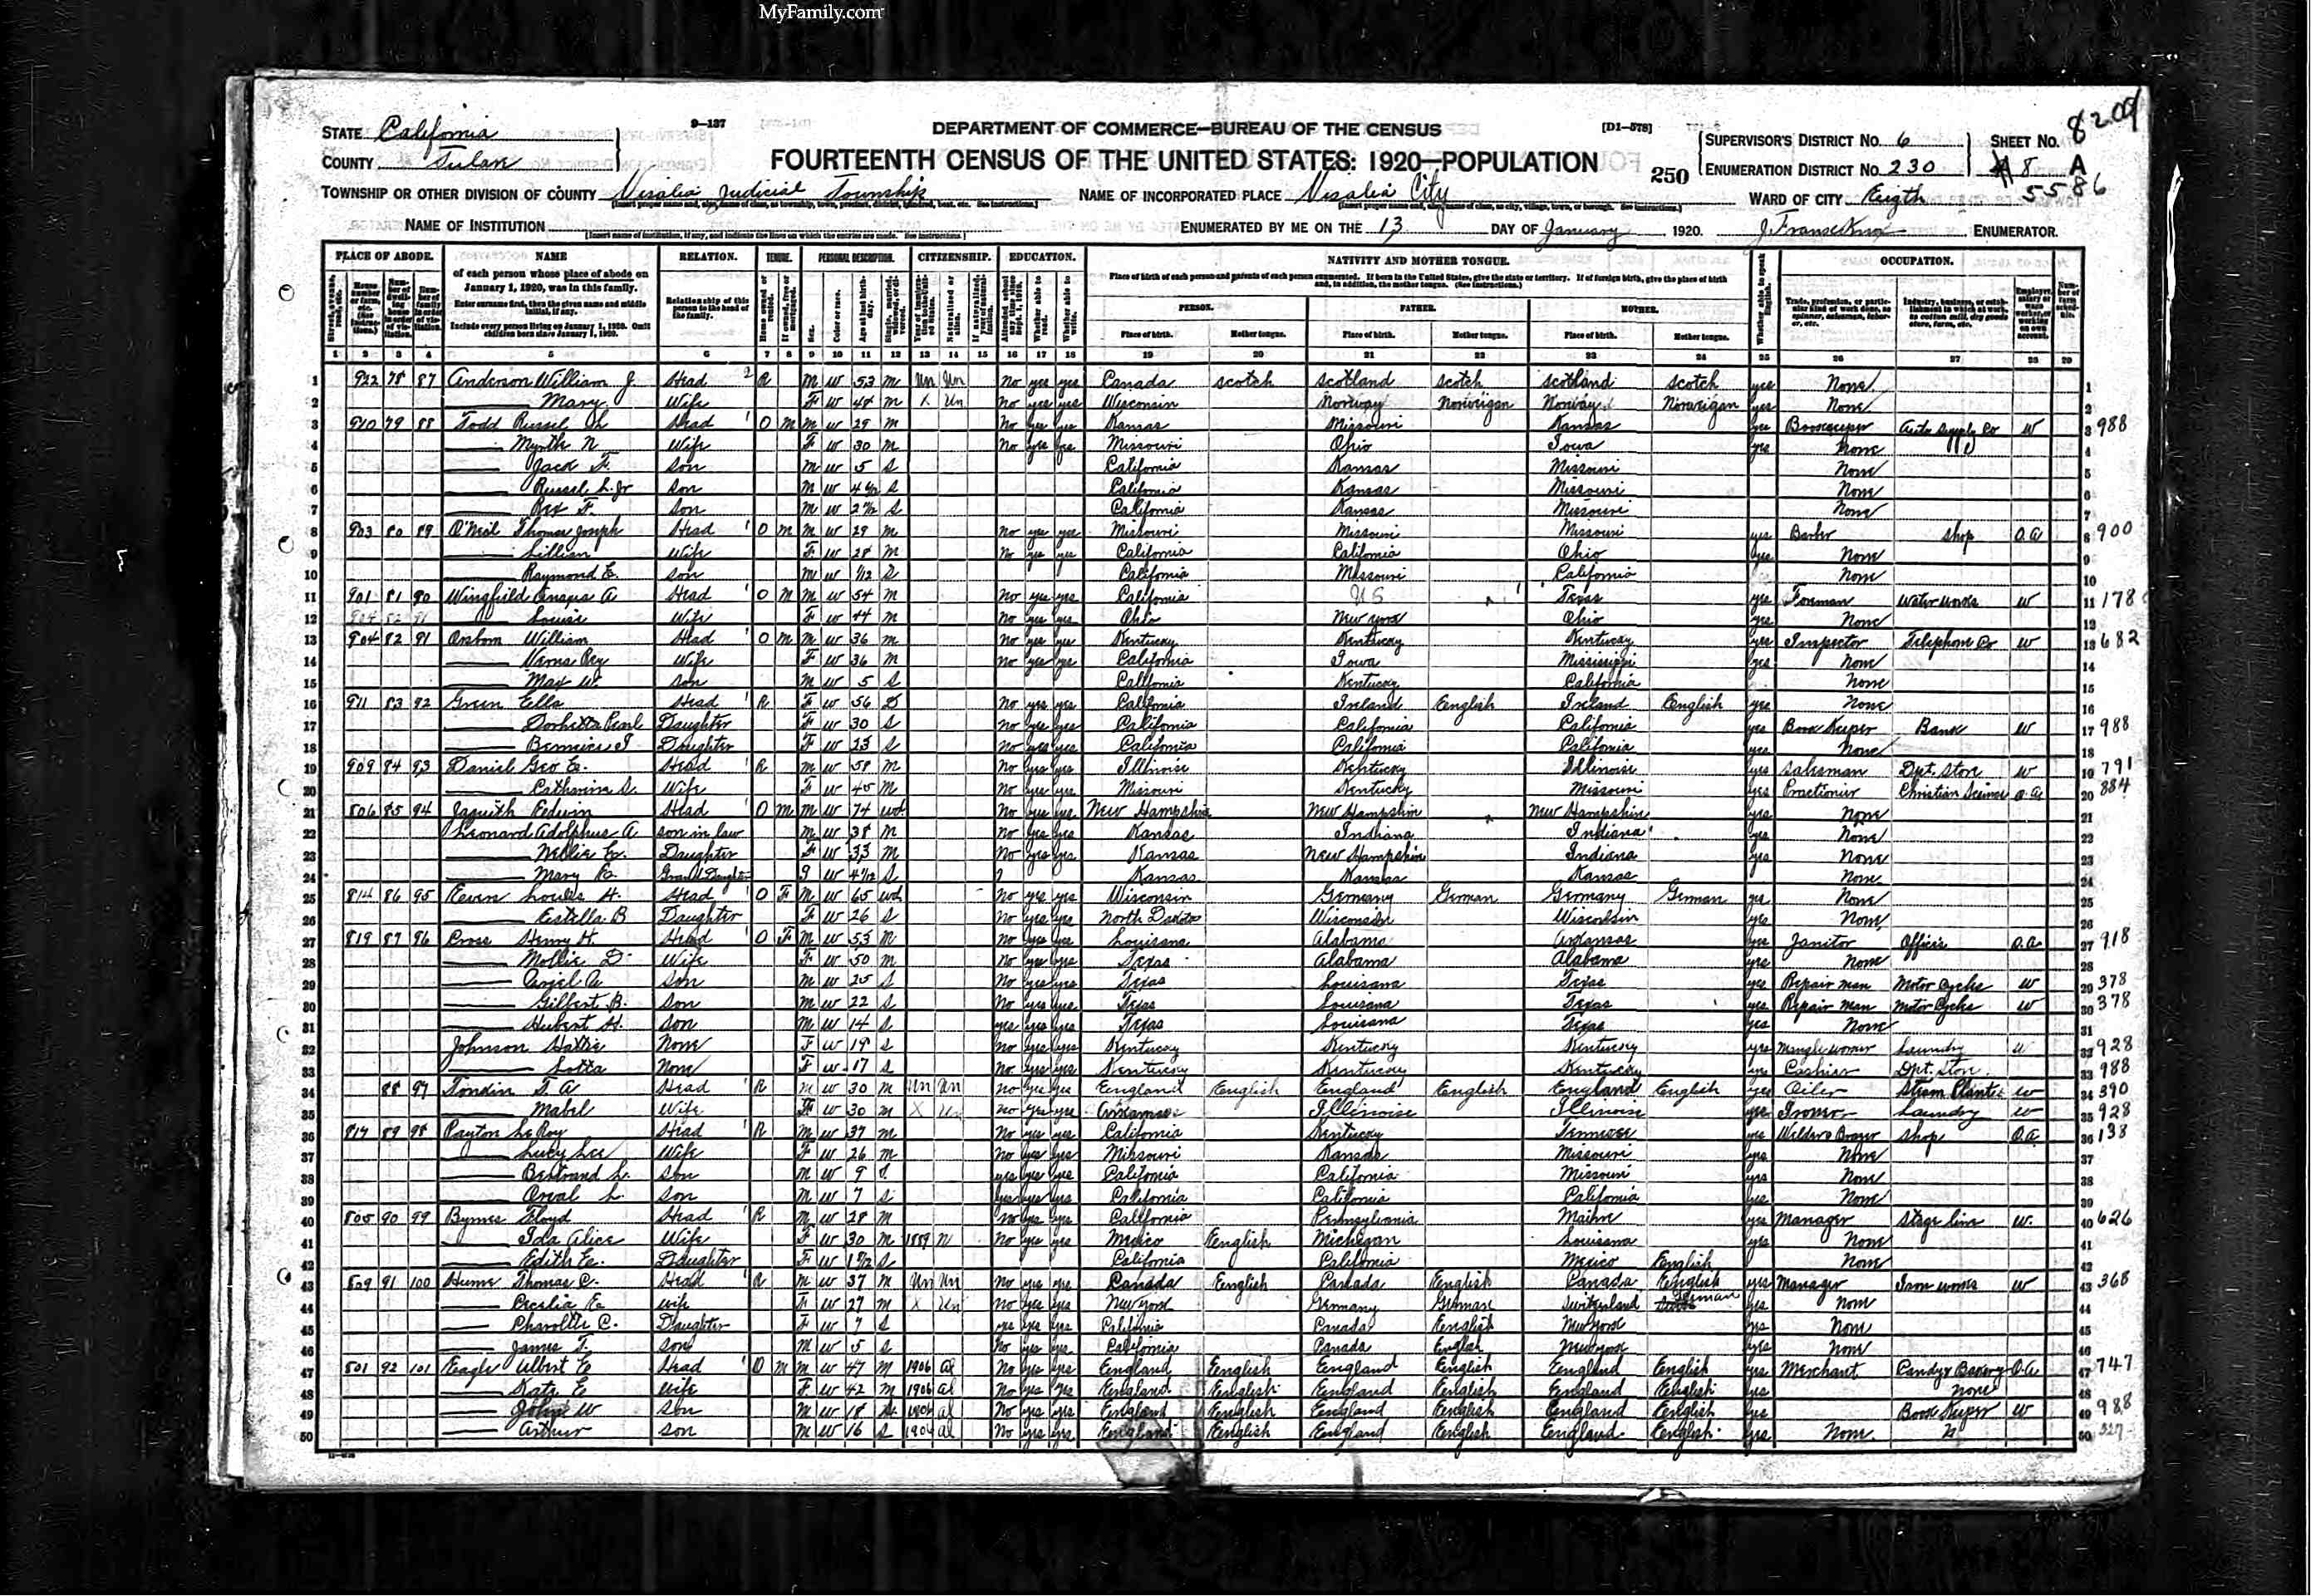 MyFamily.com
8209
9—137
DEPARTMENT OF COMMERCE—BUREAU OF THE CENSUS
[D1-578]
STATE California
COUNTY Tulare
FOURTEENTH CENSUS OF THE UNITED STATES: 1920—POPULATION
250
SUPERVISOR'S DISTRICT No. 6
SHEET No.
ENUMERATION DISTRICT No. 230
8 A
5586
TOWNSHIP OR OTHER DIVISION OF COUNTY Visalia Judicial Township
NAME OF INCORPORATED PLACE Visalia City
WARD OF CITY Eigth
NAME OF INSTITUTION
ENUMERATED BY ME ON THE 13 DAY OF January 1920.
ENUMERATOR.
PLACE OF ABODE. NAME RELATION. TENURE. PERSONAL DESCRIPTION. CITIZENSHIP. EDUCATION. NATIVITY AND MOTHER TONGUE. OCCUPATION.
of each person whose place of abode on January 1, 1920, was in this family.
Enter surname first, then the given name and middle initial, if any.
Include every person living on January 1, 1920. Omit children born since January 1, 1920.
Relationship of this person to the head of the family.
Place of birth of each person and parents of each person enumerated. If born in the United States, give the state or territory. If of foreign birth, give the place of birth and, in addition, the mother tongue. (See Instructions.)
PERSON. FATHER. MOTHER.
Place of birth. Mother tongue. Place of birth. Mother tongue. Place of birth. Mother tongue.
1 2 3 4 5 6 7 8 9 10 11 12 13 14 15 16 17 18 19 20 21 22 23 24 25 26 27 28 29
1 922 78 87 Anderson William J Head 2 R M W 53 M Un Un No yes yes Canada scotch scotland scotch scotland scotch yes None 1
2 Mary Wife F W 48 M X Un No yes yes Wisconsin Norway Norwigian Norway Norwigian yes None 2
3 910 79 88 Todd Russel Head 1 O M M W 29 M No yes yes Kansas Missouri Kansas yes Bookkeeper Auto Supply Co W 3 988
4 Myrtle N Wife F W 30 M No yes yes Missouri Ohio Iowa yes None 4
5 Jack F. son M W 5 S California Kansas Missouri None 5
6 Russel L. Jr son M W S California Kansas Missouri None 6
7 Rex F. son M W S California Kansas Missouri None 7
8 903 80 89 O'Neil Thomas Joseph Head 1 O M M W 29 M No yes yes Missouri Missouri Missouri yes Barber shop O.A 8 900
9 Lillian Wife F W 28 M No yes yes California California Ohio yes None 9
10 Raymond E. son M W 1/12 S California Missouri California None 10
11 901 81 90 Wingfield A Head 1 O M M W 54 M No yes yes California US Texas yes Forman Water Works W 11 178
12 904 82 91 Louise Wife F W 44 M No yes yes Ohio New York Ohio yes None 12
13 904 82 91 Osborn William Head 1 O M M W 36 M No yes yes Kentucky Kentucky Kentucky yes Inspector Telephone Co W 13 682
14 Verna Wife F W 36 M No yes yes California Iowa Mississippi yes None 14
15 Max W. son M W 5 S California Kentucky California None 15
16 911 83 92 Green Ella Head 1 R F W 56 D No yes yes California Ireland English Ireland English yes None 16
17 Pearl Daughter F W 30 S No yes yes California California California yes Book Keeper Bank W 17 988
18 Bernice I Daughter F W 23 S No yes yes California California California yes None 18
19 909 84 93 Daniel Geo E. Head 1 R M W 58 M No yes yes Illinoise Kentucky Illinoise yes Salesman Dpt. Store W 19 791
20 Catharine S. Wife F W 45 M No yes yes Missouri Kentucky Missouri yes Practioner Christian Science O.A 20 884
21 806 85 94 Jaquith Edwin Head 1 O M M W 74 wd No yes yes New Hampshire New Hampshire New Hampshire yes None 21
22 Leonard Adolphus A son in law M W 38 M No yes yes Kansas Indiana Indiana yes None 22
23 Nellie E. Daughter F W 33 M No yes yes Kansas New Hampshire Indiana yes None 23
24 Mary E. Grand Daughter F W 4 S Kansas Kansas Kansas None 24
25 814 86 95 Keven Louis H. Head 1 O F M W 65 wd No yes yes Wisconsin Germany German Germany German yes None 25
26 Estella B Daughter F W 26 S No yes yes North Dakota Wisconsin Wisconsin yes None 26
27 819 87 96 Cross Henry H. Head 1 O F M W 53 M No yes yes Louisana Alabama Arkansas yes Janitor Offices O.A. 27 918
28 Mollie D. Wife F W 50 M No yes yes Texas Alabama Alabama yes None 28
29 son M W 25 S No yes yes Texas Louisana Texas yes Repair man Motor Cycles W 29 378
30 Gilbert B. son M W 22 S No yes yes Texas Louisana Texas yes Repair man Motor Cycles W 30 378
31 Hubert H. son M W 14 S yes yes yes Texas Louisana Texas yes None 31
32 Johnson Hattie None F W 19 S No yes yes Kentucky Kentucky Kentucky yes Mangle worker Laundry W 32 928
33 Lotta None F W 17 S No yes yes Kentucky Kentucky Kentucky yes Cashier Dpt. store. 33 988
34 88 97 T A Head 1 R M W 30 M Un Un No yes yes England English England English England English yes Oiler Steam Plant W 34 390
35 Mabel Wife F W 30 M X Un No yes yes Arkansas Illinoise Illinoise yes Ironer Laundry W 35 928
36 817 89 98 Payton LeRoy Head 1 R M W 37 M No yes yes California Kentucky Tennessee yes Welder & Brazer Shop O.A. 36 138
37 Lucy Lee Wife F W 26 M No yes yes Missouri Kansas Missouri yes None 37
38 Bertrand L. son M W 9 S yes yes yes California California Missouri yes None 38
39 Orval L son M W 7 S yes yes yes California California California yes None 39
40 805 90 99 Byrnes Floyd Head 1 R M W 28 M No yes yes California Pennsylvania Maine yes Manager Stage line W. 40 626
41 Ida Alice Wife F W 30 M 1889 N No yes yes Mexico English Michegan Louisana yes None 41
42 Edith E. Daughter F W S California California Mexico English None 42
43 809 91 100 Hume Thomas C. Head R M W 37 M Un Un No yes yes Canada English Canada English Canada English yes Manager Iron works W 43 368
44 Cecelia E wife F W 27 M X Un No yes yes New York Germany German Switzerland German yes None 44
45 Charoltte C. Daughter F W 7 S yes yes yes California Canada English New York yes None 45
46 James T. son M W 5 S No yes yes California Canada English New York yes None 46
47 801 92 101 Eagle Albert E Head 1 O M M W 47 M 1906 Al No yes yes England English England English England English yes Merchant Candy & Bakery O.A 47 747
48 Kate E wife F W 42 M 1906 Al No yes yes England English England English England English yes none 48
49 John W son M W 18 S 1906 Al No yes yes England English England English England English yes Book Keeper W 49 988
50 Arthur son M W 16 S 1906 Al No yes yes England English England English England English yes None 50